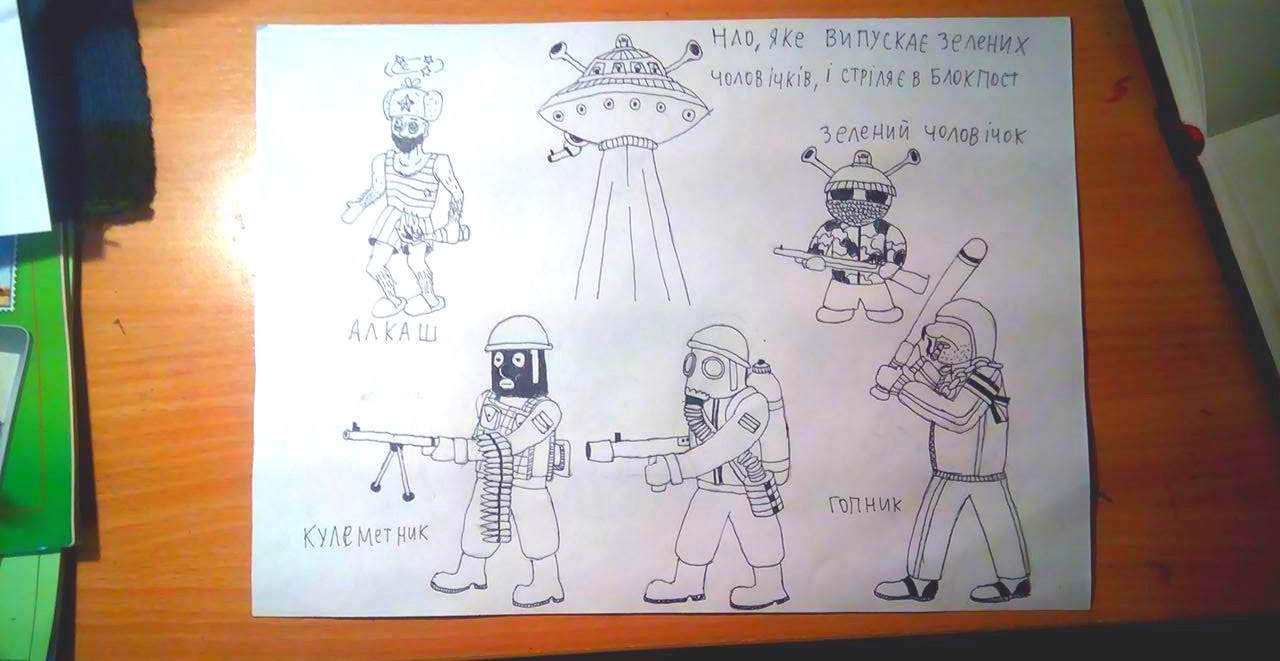 Нло, яке випускає зелених
чоловічків, і стріляє в блокпост
зелений чоловічок
Алкаш
кулеметник
гопник